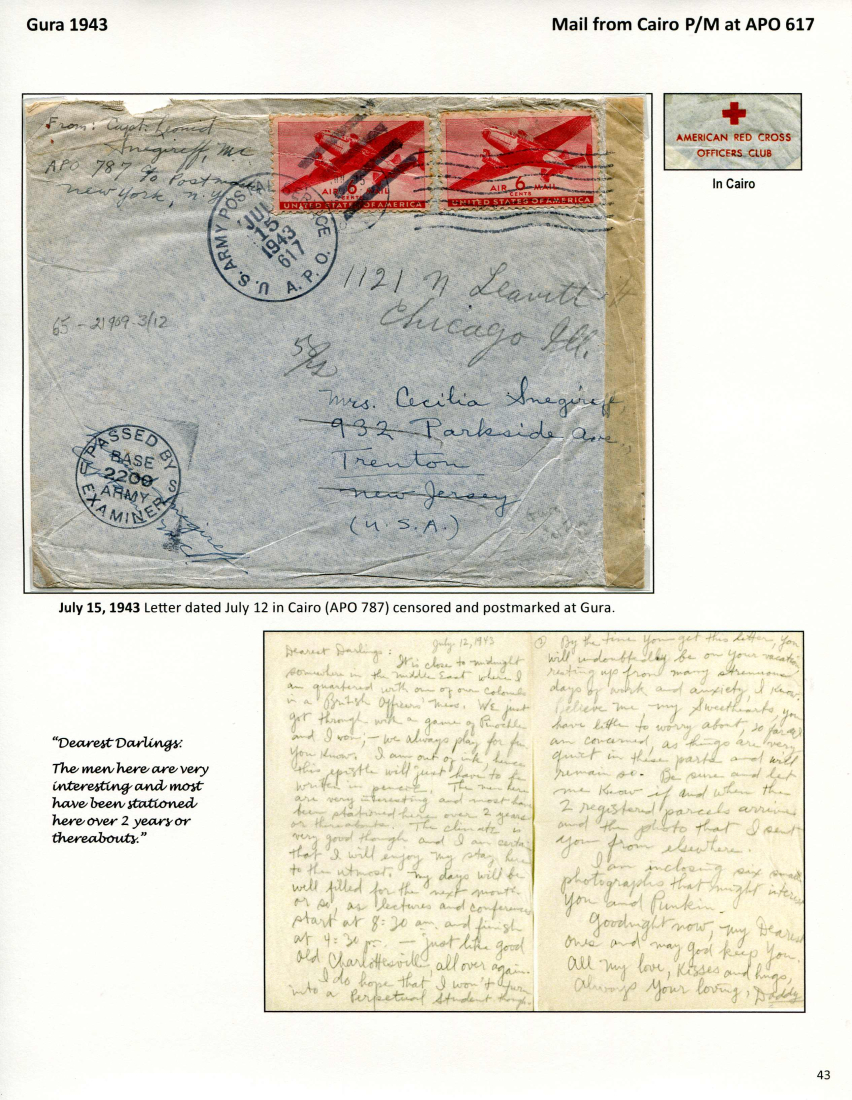 Gura 1943
Mail from Cairo P/M at APO 617
From: Capt. Leonid
Snegireff, MC
APO 787 c/o Postmaster
New York, N.Y.
AIR 6 MAIL
CENTS
UNITED STATES OF AMERICA
AIR 6 MAIL
CENTS
UNITED STATES OF AMERICA
U.S. ARMY POSTAL SERVICE
JUL
15
1943
617
A.P.O.
AMERICAN RED CROSS
OFFICERS CLUB
In Cairo
1121 N Leavitt st
Chicago Ill.
65-21909-3/12
Mrs. Cecilia Snegireff,
932 Parkside Ave.,
Trenton
New Jersey
(U.S.A.)
PASSED BY
BASE
2200
ARMY
EXAMINER
U S
Snegireff
MC
July 15, 1943 Letter dated July 12 in Cairo (APO 787) censored and postmarked at Gura.
"Dearest Darlings:
The men here are very
interesting and most
have been stationed
here over 2 years or
thereabouts."
July 12, 1943
Dearest Darlings:
It is close to midnight
somewhere in the middle East where I
am quartered with one of our colonels
in a British Officers' Mess. We just
got through with a game of Pinochle
and I won; - we always play for fun
you know. I am out of ink, hence
this epistle will just have to be
written in pencil. The men here
are very interesting and most have
been stationed here over 2 years
or thereabouts. The climate is
very good though and I am certain
that I will enjoy my stay here
to the utmost. My days will be
well filled for the next month
or so, as lectures and conferences
start at 8:30 am. and finish
at 4:30 p. - Just like good
old Charlottesville, all over again.
I do hope that I won't turn
into a Perpetual Student
2
By the time you get this letter, you
will undoubtedly be on your vacation
resting up from many strenuous
days of work and anxiety, I know.
Believe me my Sweethearts, you
have little to worry about, so far as I
am concerned, as things are very
quiet in these parts and will
remain so. Be sure and let
me know if and when the
2 registered parcels arrive
and the photo that I sent
you from elsewhere.
I am inclosing six small
photographs that might interest
you and Punkin.
Goodnight now, my Dearest
ones and may god keep you.
All my love, kisses and hugs,
Always your loving, Daddy
43